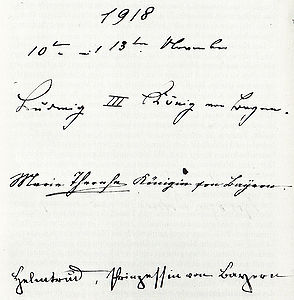 1918
10ten mit 13ten November
Ludwig III König von Bayern.
Marie Therese Königin von Bayern.
Helmtrud, Prinzessin von Bayern